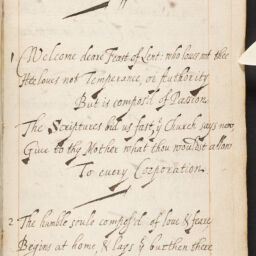 1 Welcome deare Feast of Lent: who loves not thee
Hee loves not Temperance, or Authority
But is compos'd of Passion.
The Scriptures bid us fast, ye Church says now,
Give to thy Mother what thou wouldst allow
To every Corporation.
2 The humble soule compos'd of love & feare
Begins at home, & lays ye burthen there